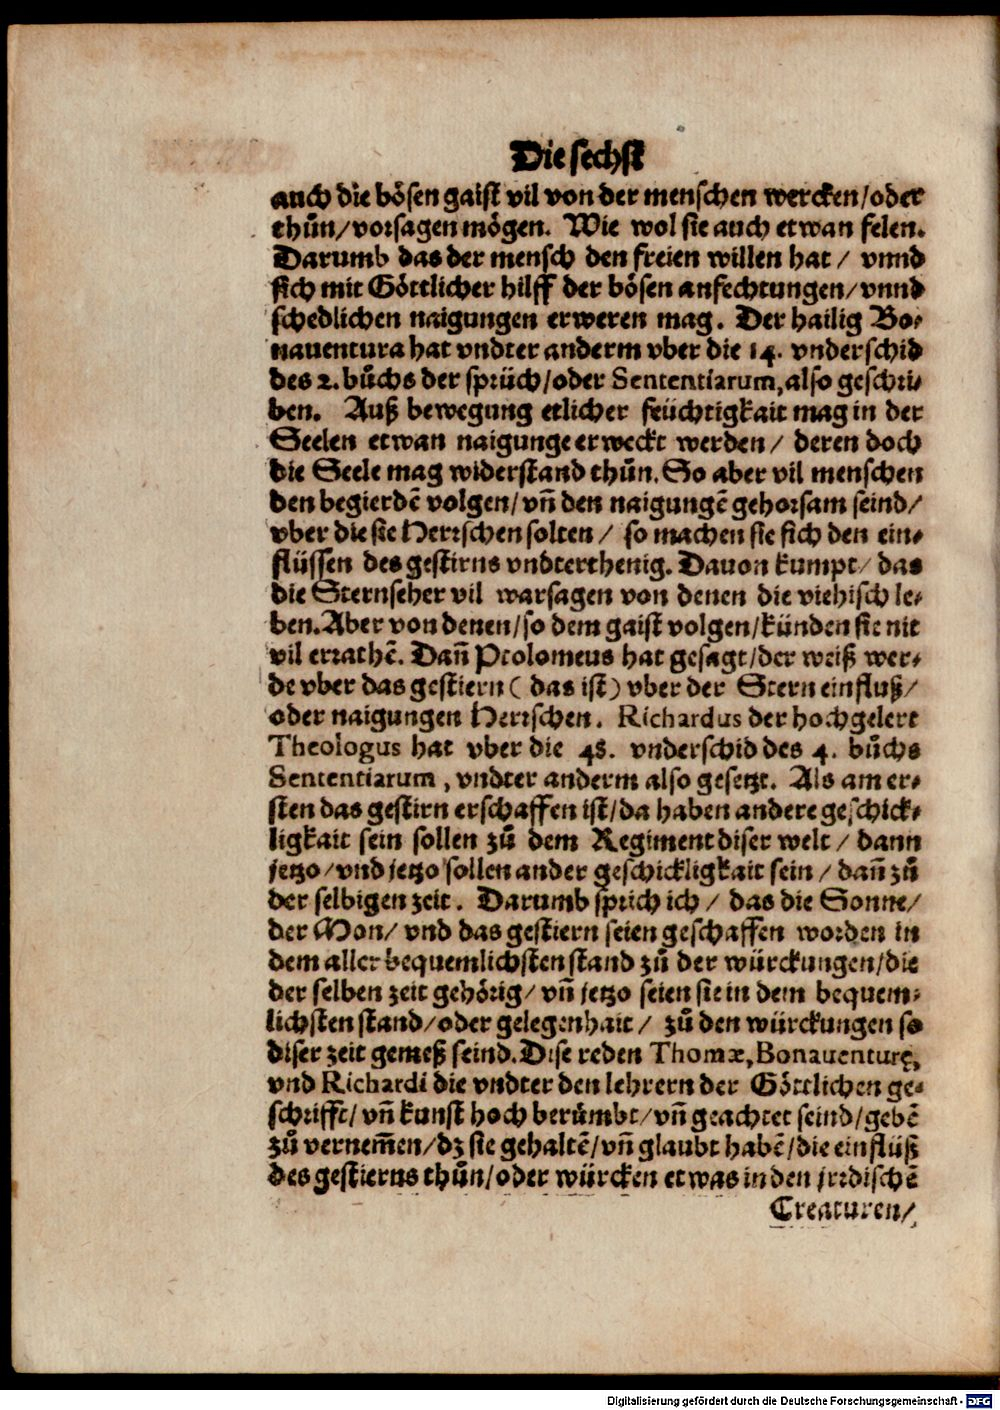 Die sechst
auch die bösen gaist vil von der menschen wercken/oder
thůn/vorsagen mögen. Wie wol sie auch etwan felen.
Darumb das der mensch den freien willen hat/ vnnd
sich mit Göttlicher hilff der bösen anfechtungen/vnnd
schedlichen naigungen erweren mag. Der hailig Bo⸗
nauentura hat vndter anderm vber die 14. vnderschid
des 2. bůchs der sprüch/oder Sententiarum, also geschri⸗
ben. Auß bewegung etlicher feüchtigkait mag in der
Seelen etwan naigunge erweckt werden/ deren doch
die Seele mag widerstand thůn. So aber vil menschen
den begierdẽ volgen/vñ den naigungẽ gehorsam seind/
vber die sie Herrschen solten/ so machen sie sich den ein⸗
flüssen des gestirns vndterthenig. Dauon kumpt/ das
die Sternseher vil warsagen von denen die viehisch le⸗
ben. Aber von denen/so dem gaist volgen/künden sie nit
vil errathẽ. Dañ Ptolomeus hat gesagt/der weiß wer⸗
de vber das gestiern ( das ist ) vber der Stern einfluß/
oder naigungen Herrschen. Richardus der hochgelert
Theologus hat vber die 48. vnderschid des 4. bůchs
Sententiarum, vndter anderm also gesetzt. Als am er⸗
sten das gestirn erschaffen ist/da haben andere geschick⸗
ligkait sein sollen zů dem Regiment diser welt/ dann
jetzo/vnd jetzo sollen ander geschickligkait sein/ dañ zů
der selbigen zeit. Darumb sprich ich/ das die Sonne/
der Mon/ vnd das gestiern seien geschaffen worden in
dem aller bequemlichsten stand zů der würckungen/die
der selben zeit gehörig/ vñ jetzo seien sie in dem bequem⸗
lichsten stand/oder gelegenhait/ zů den würckungen so
diser zeit gemeß seind. Dise reden Thomæ, Bonauenturę,
vnd Richardi die vndter den lehrern der Göttlichen ge⸗
schrifft/ vñ kunst hoch berůmbt/vñ geachtet seind/gebẽ
zů vernem̃en/dz sie gehaltẽ/vñ glaubt habẽ/die einflüß
des gestierns thůn/oder würcken etwas in den jrrdischẽ
Creaturen/
Digitalisierung gefördert durch die Deutsche Forschungsgemeinschaft - DFG